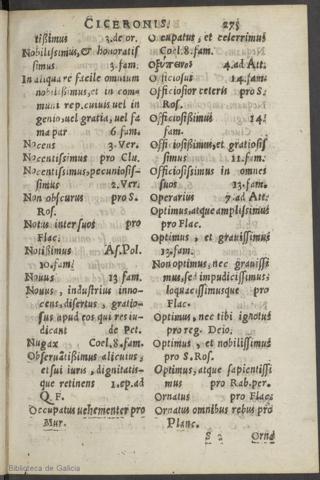 CICERONIS. 275
tissimus 3.de or.
Nobilissimus, & honoratis
simus 3.fam.
In aliqua re facile omnium
nobilissimus, et in com-
muni rep. cuiuis uel in
genio, uel gratia, uel fa
ma par 6 fam.
Nocens 3. Ver.
Nocentissimus pro Clu.
Nocentissimus, pecuniosis-
simus 2. Ver.
Non obscurus pro S.
Ros.
Notus inter suos pro
Flac.
Notissimus As. Pol.
10. fam.
Nouus 13 fam.
Nouus, industrius inno-
cens, disertus, gratio-
sus apud eos qui res iu-
dicant de Pet.
Nugax Coel. 8. fam.
Obseruatissimus alicuius,
et sui iuris, dignitatis-
que retinens 1. ep. ad
Q. F.
Occupatus uehementer pro
Mur.
Occupatus, et celerrimus
Coel. 8. fam.
4. ad Att.
Officiosus 14. fam.
Officiosior ceteris pro S.
Ros.
Officiosissimus 14.
fam.
Officiosissimus, et gratiosis
simus 11. fam.
Officiosissimus in omnes
suos 13. fam.
Operarius 7. ad Att.
Optimus, atque amplissimus
pro Flac.
Optimus, et grauissimus
13. fam.
Non optimus, nec grauissi
mus, sed impudicissimus,
loquacissimusque pro
Flac.
Optimus, nec tibi ignotus
pro reg. Deio.
Optimus, et nobilissimus
pro S. Ros.
Optimus, atque sapientissi
mus pro Rab. per.
Ornatus pro Flac.
Ornatus omnibus rebus pro
Planc.
S 2 Orna
Biblioteca de Galicia